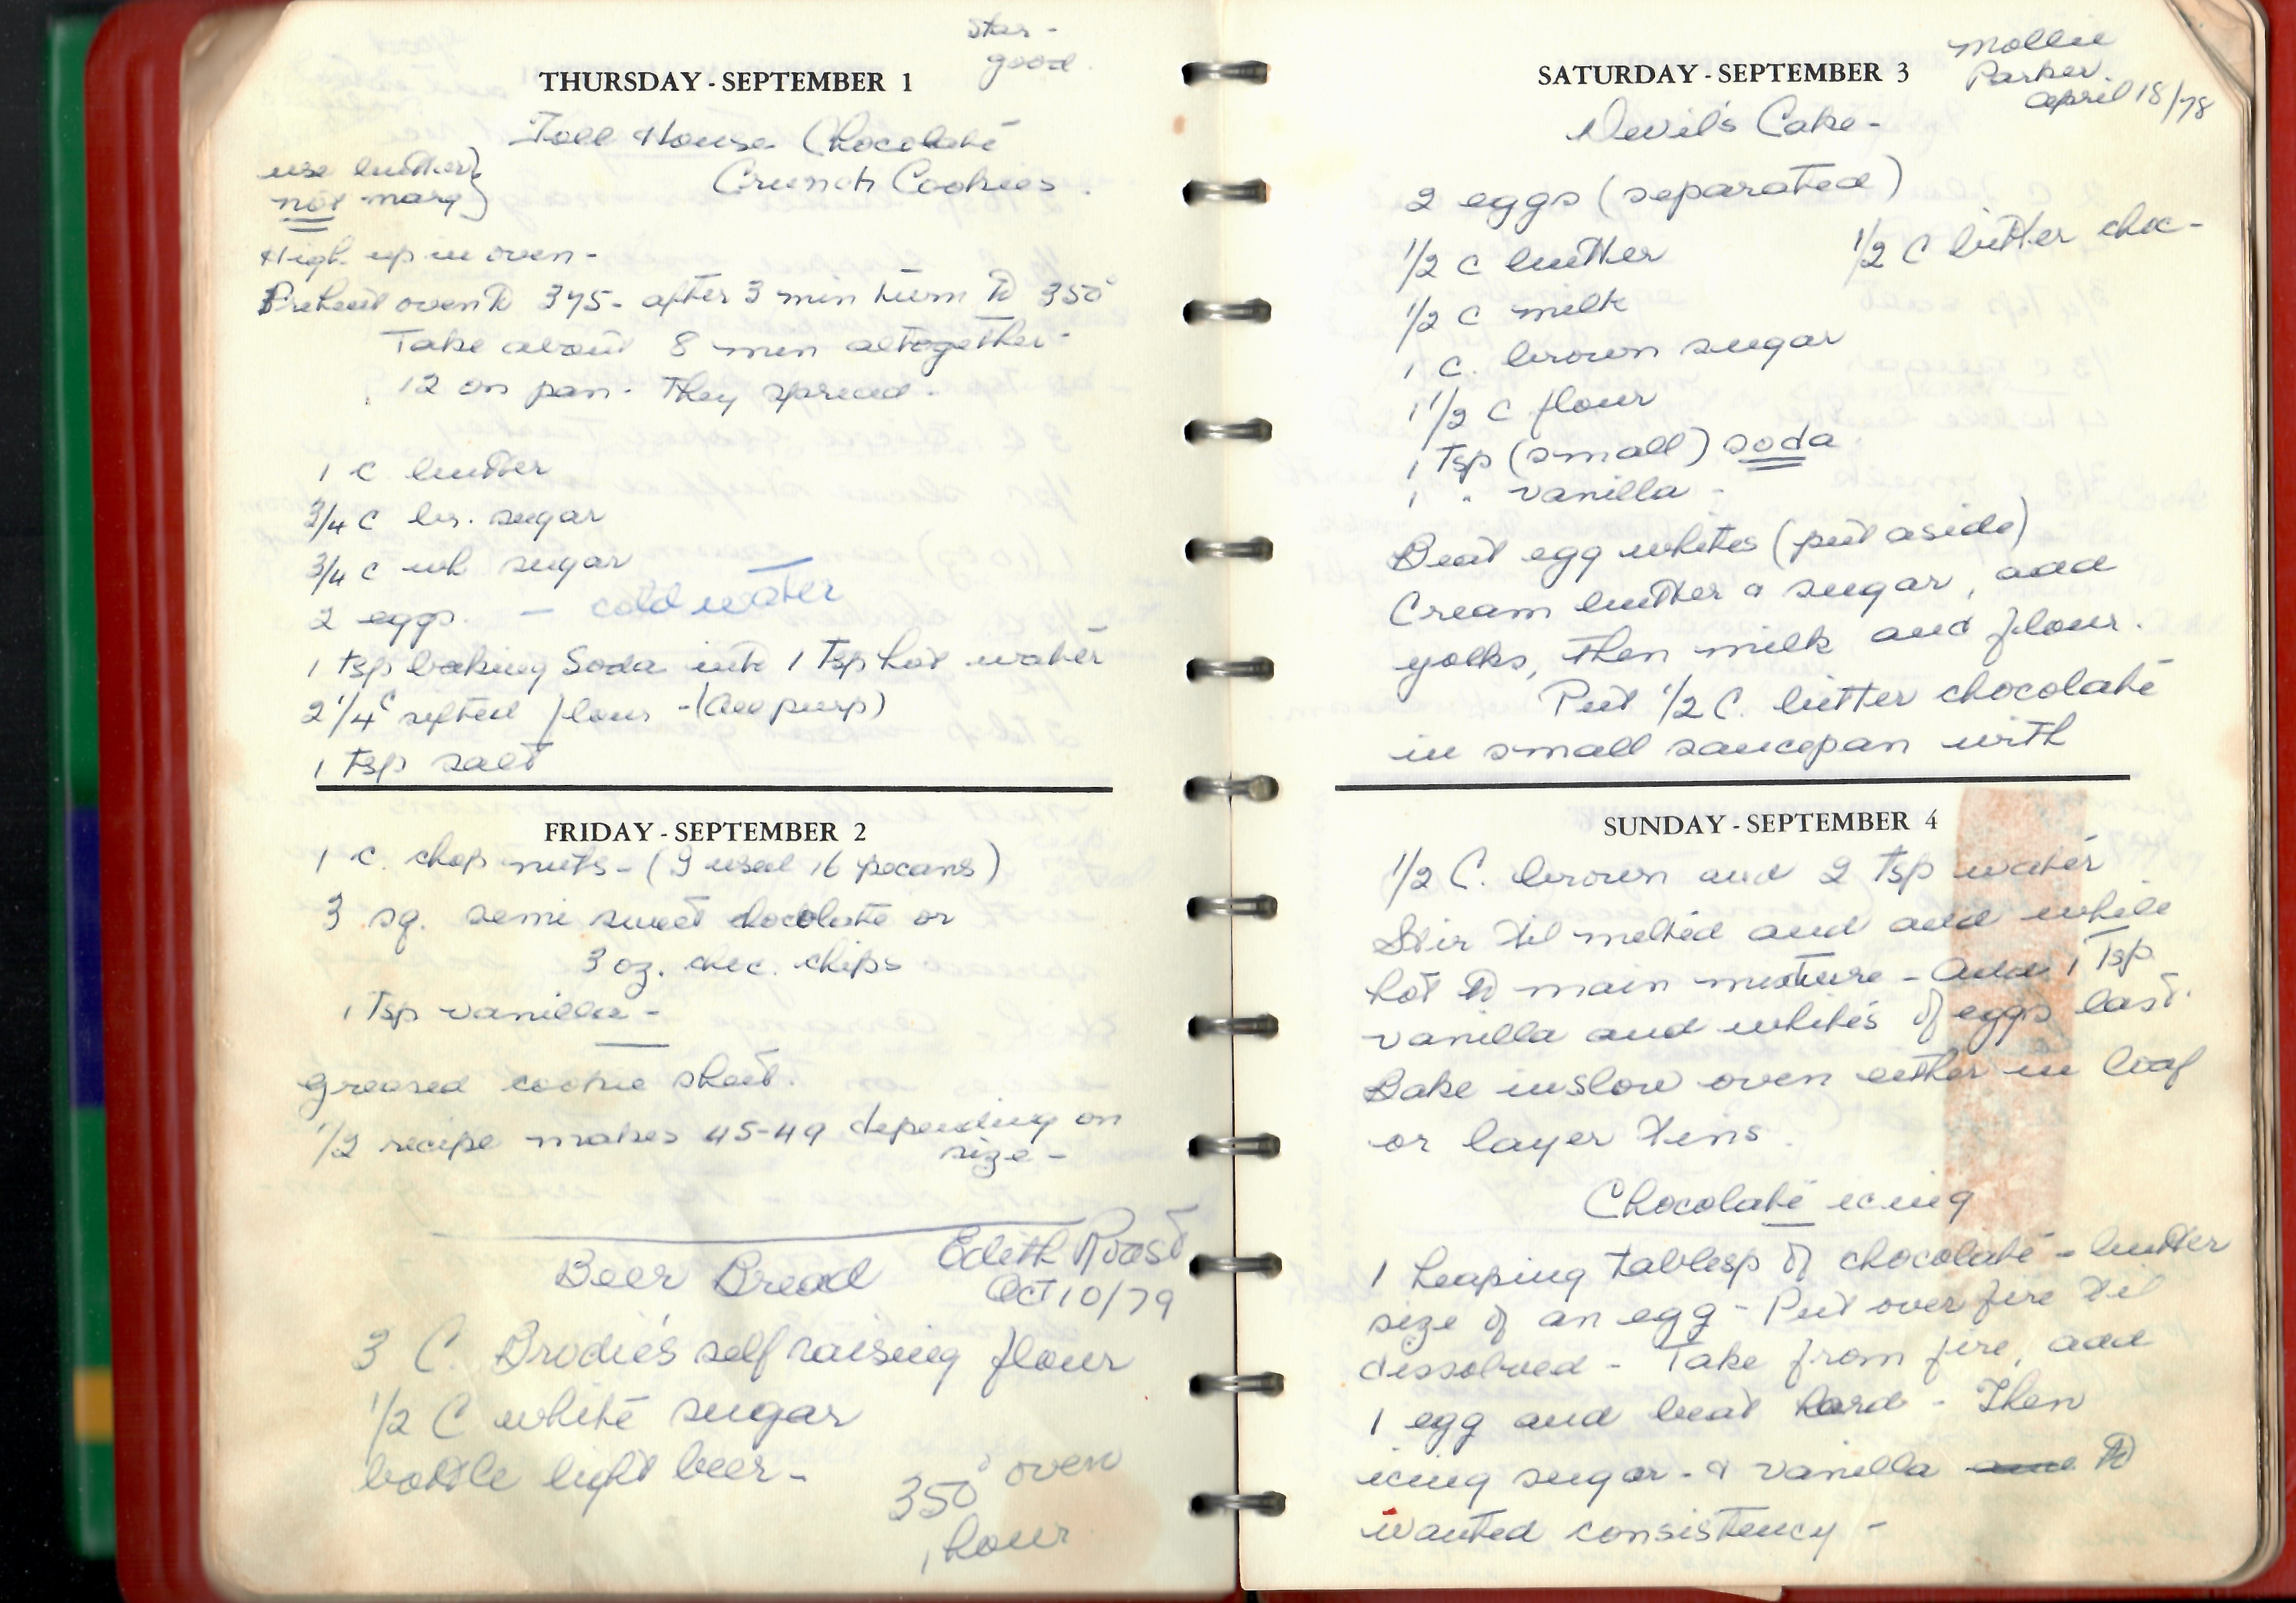 Star -
good.
THURSDAY - SEPTEMBER 1
Toll House Chocolate
Crunch Cookies.
use butter}
not marg}
High up in oven -
Preheat oven to 375 - after 3 min turn to 350°
Take about 8 min altogether -
12 on pan. They spread.
1 c butter
3/4 c br. sugar
3/4 c wh sugar
2 eggs. - cold water
1 tsp baking Soda into 1 Tsp hot water
2 1/4 c sifted flour - (all purp)
1 tsp salt
FRIDAY - SEPTEMBER 2
1 c. chop nuts - (I used 16 pecans)
3 sq. semi sweet chocolate or
3 oz. choc. chips
1 Tsp vanilla -
greased cookie sheet.
1/2 recipe makes 45-49 depending on
size -
Beer Bread
Edith Roast
Oct 10/79
3 C. Brodie's self raising flour
1/2 C white sugar
bottle light beer -
350° oven
1 hour
SATURDAY - SEPTEMBER 3
Mollie
Parker.
April 18/78
Devil's Cake -
2 eggs (separated)
1/2 c butter 1/2 c bitter choc -
1/2 c milk
1 c. brown sugar
1 1/2 c flour
1 Tsp (small) soda.
1 " vanilla -
Beat egg whites (put aside)
Cream butter & sugar, add
yolks, then milk and flour.
Put 1/2 C. bitter chocolate
in small saucepan with
SUNDAY - SEPTEMBER 4
1/2 C. brown and 2 tsp water
Stir til melted and add while
hot to main mixture - Add 1 Tsp
vanilla and whites of eggs last.
Bake in slow oven either in loaf
or layer tins.
Chocolate icing
1 heaping tablesp of chocolate - butter
size of an egg - Put over fire til
dissolved - Take from fire, add
1 egg and beat hard - Then
icing sugar - & vanilla and to
wanted consistency -